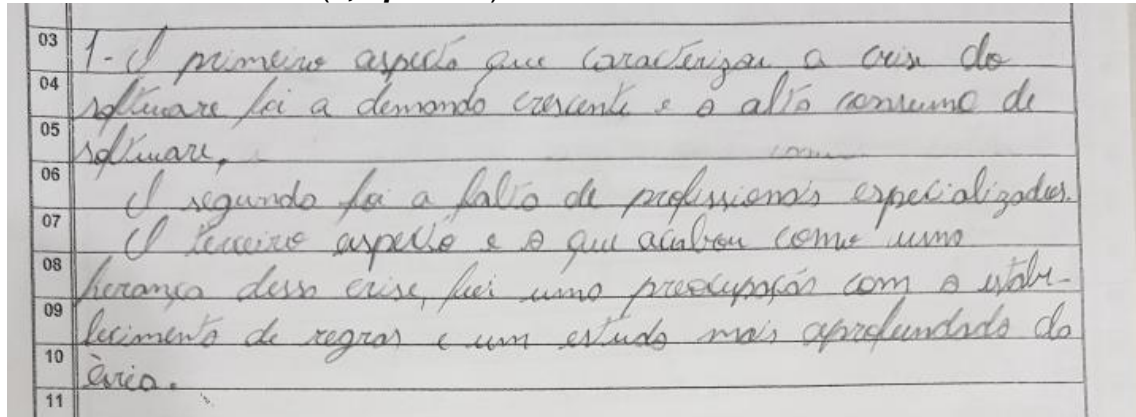 03 1- O primeiro aspecto que caracterizou a crise do
04 software foi a demanda crescente e o alto consumo de
05 software.
06 O segundo foi a falta de profissionais especializados.
07 O terceiro aspecto e o que acabou como uma
08 herança dessa crise, foi uma preocupação com o estabe-
09 lecimento de regras e um estudo mais aprofundado da
10 área.
11